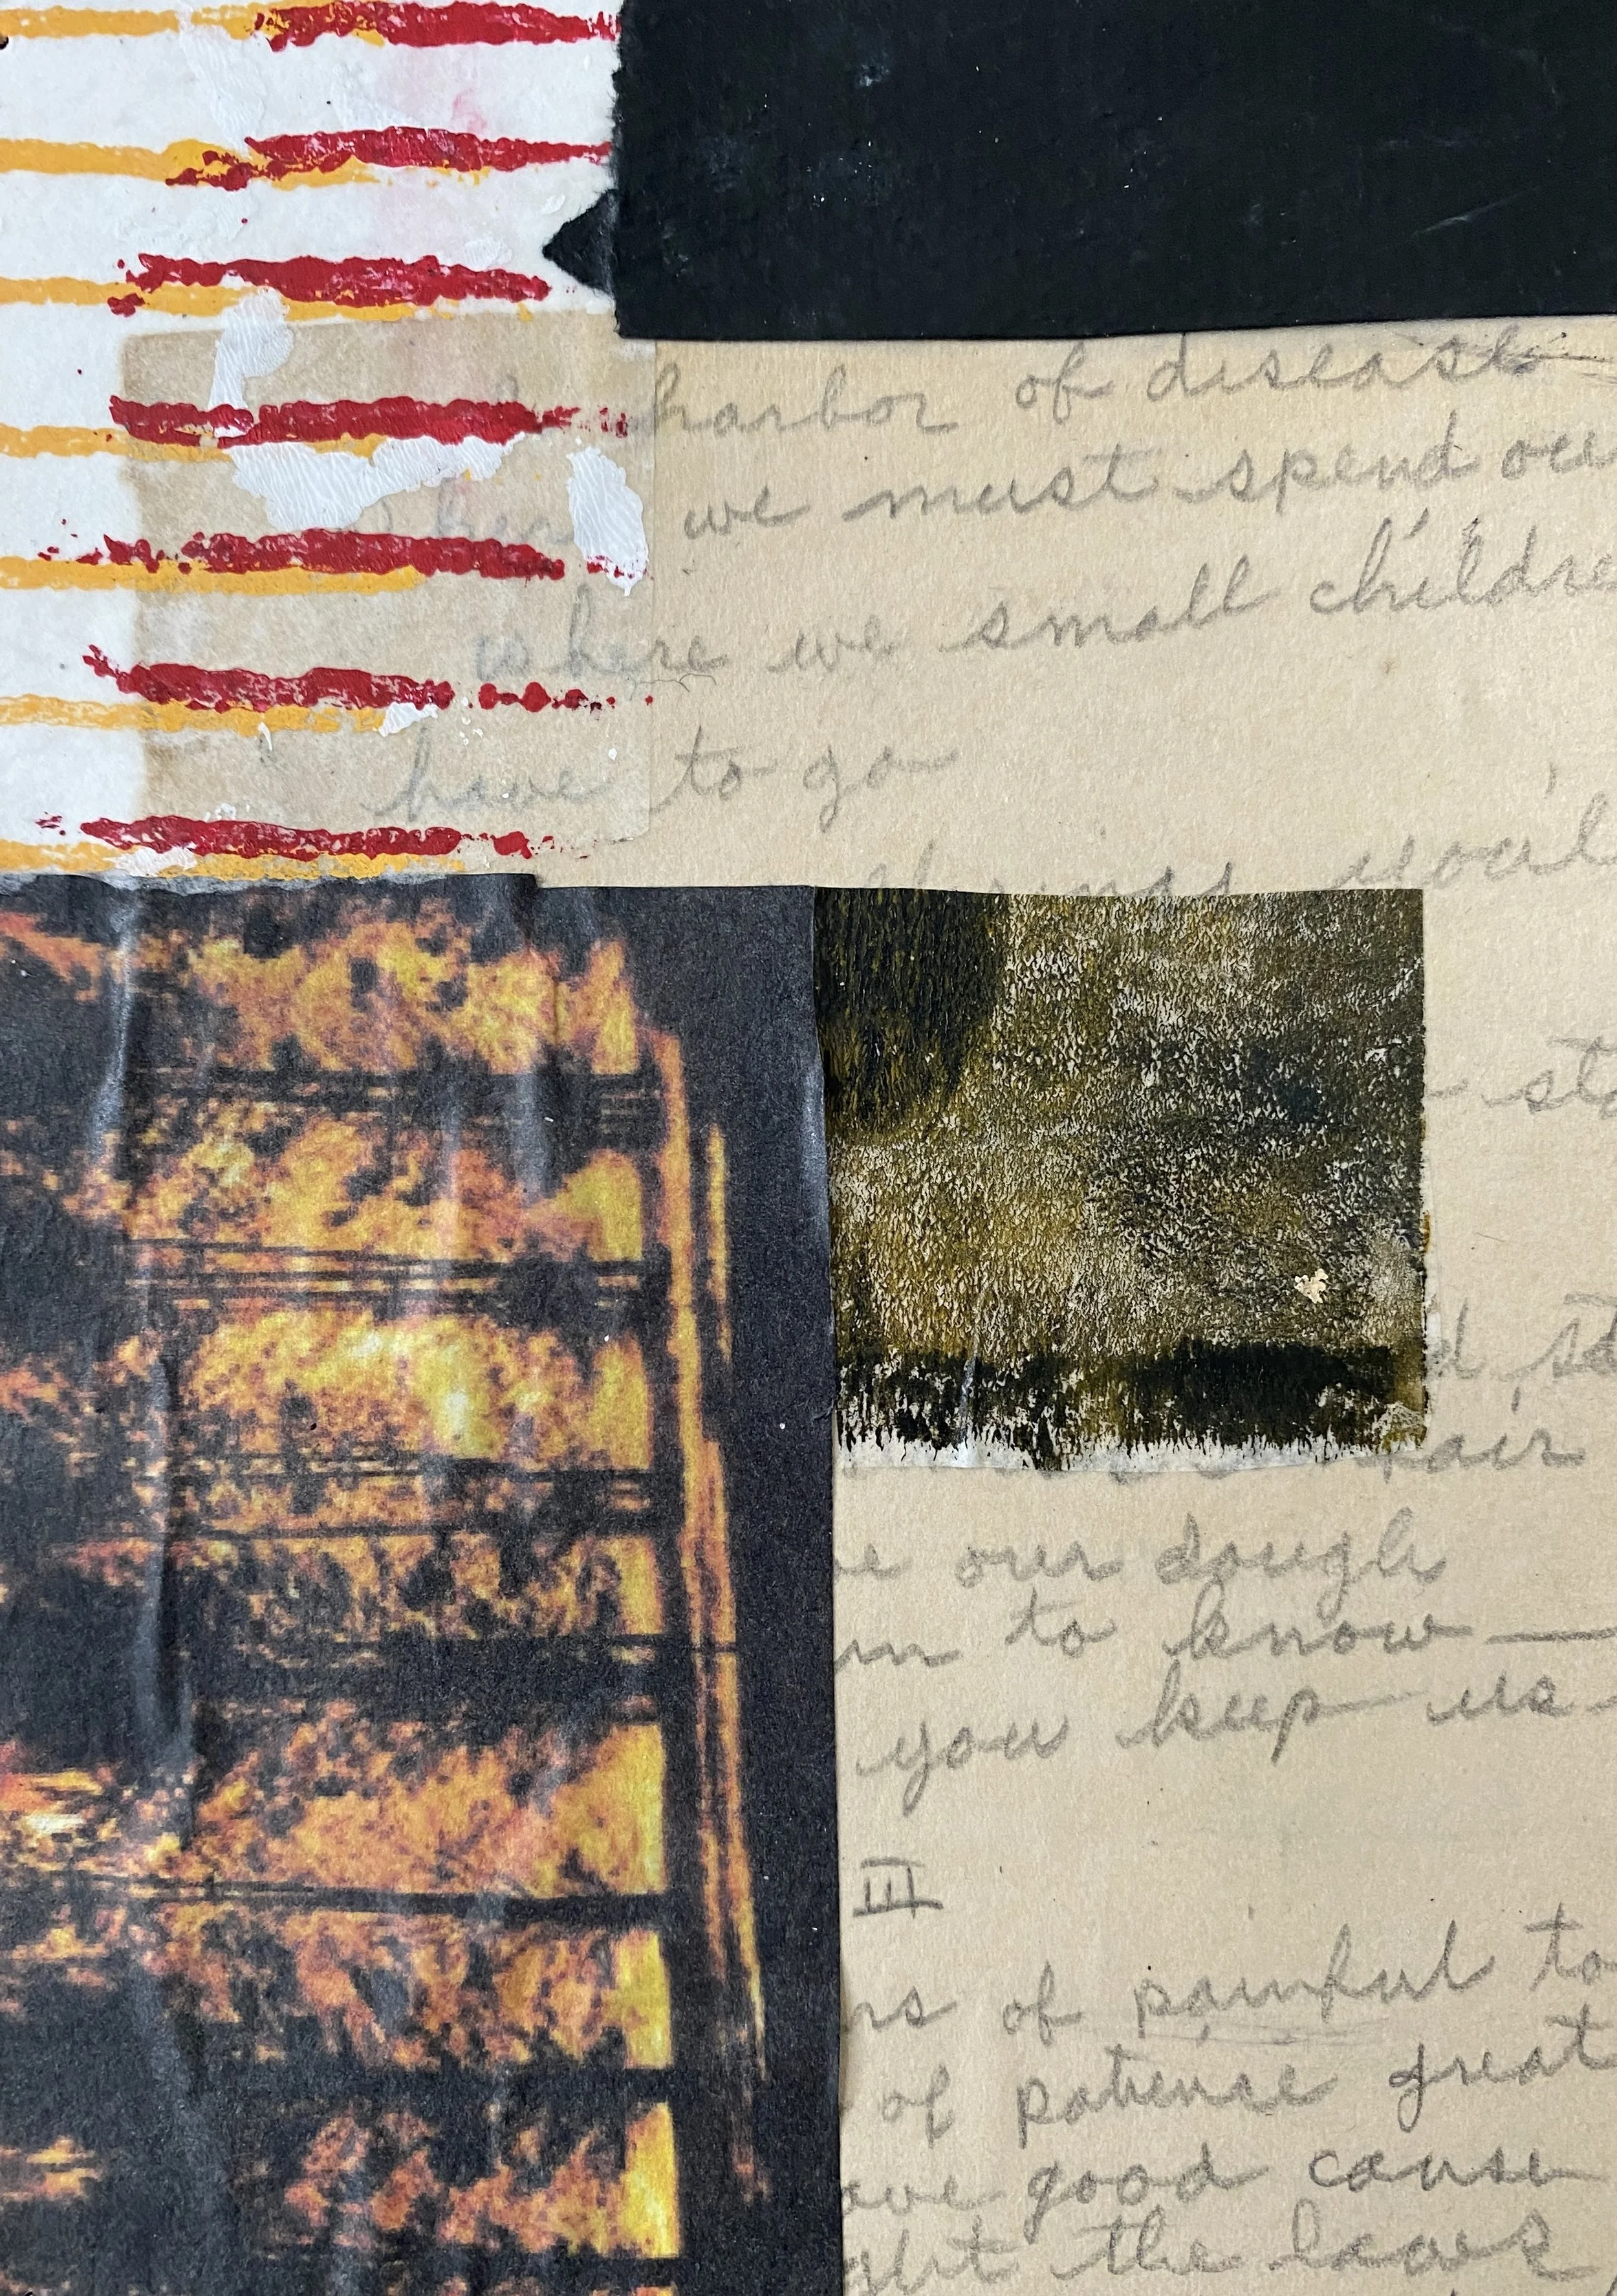 harbor of disease
we must spend our
where we small childre
have to go
things you'l
- sto
d st
air
e our dough
to know —
you keep us -
III
rs of painful to
of patience great
ave good cause
ght the laws